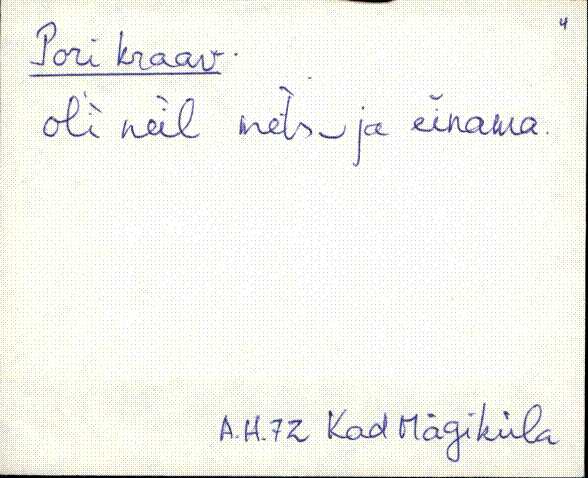 4
Pori kraav.
oli neil mets ja einama.
A.H.72 Kad Mägiküla